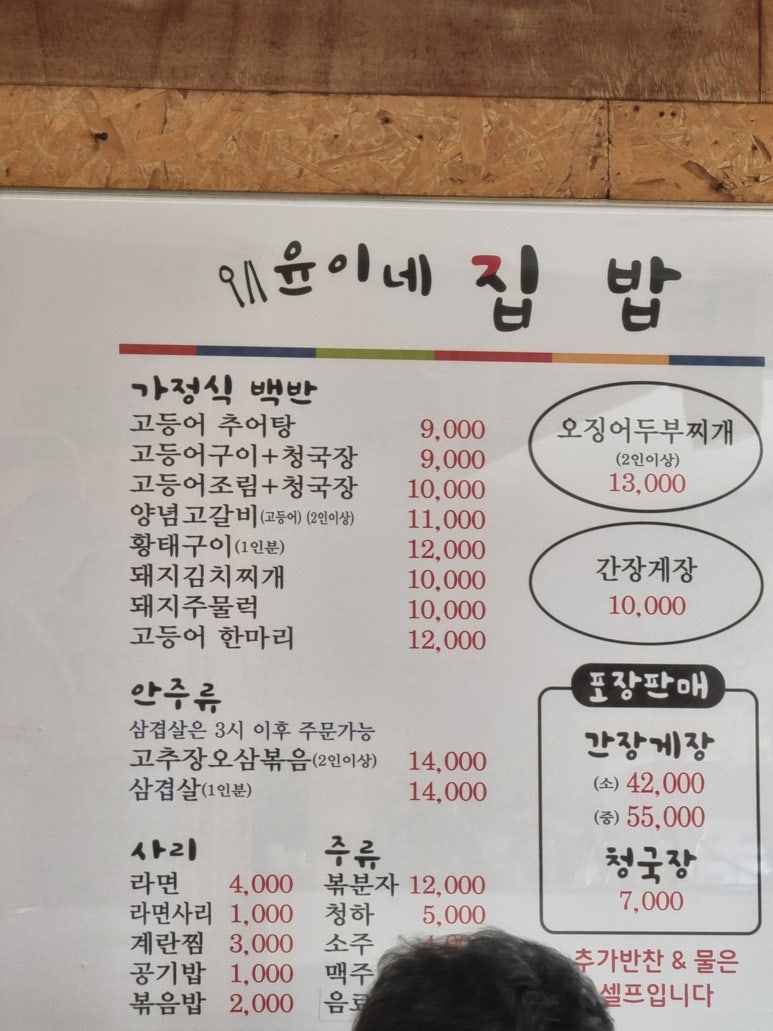 윤이네 집 밥
가정식 백반
고등어 추어탕 9,000
고등어구이+청국장 9,000
고등어조림+청국장 10,000
양념고갈비(고등어) (2인이상) 11,000
황태구이(1인분) 12,000
돼지김치찌개 10,000
돼지주물럭 10,000
고등어 한마리 12,000
안주류
삼겹살은 3시 이후 주문가능
고추장오삼볶음(2인이상) 14,000
삼겹살(1인분) 14,000
사리
라면 4,000
라면사리 1,000
계란찜 3,000
공기밥 1,000
볶음밥 2,000
주류
볶분자 12,000
청하 5,000
소주
맥주
오징어두부찌개
(2인이상)
13,000
간장게장
10,000
포장판매
간장게장
(소) 42,000
(중) 55,000
청국장
7,000
추가반찬 & 물은
셀프입니다